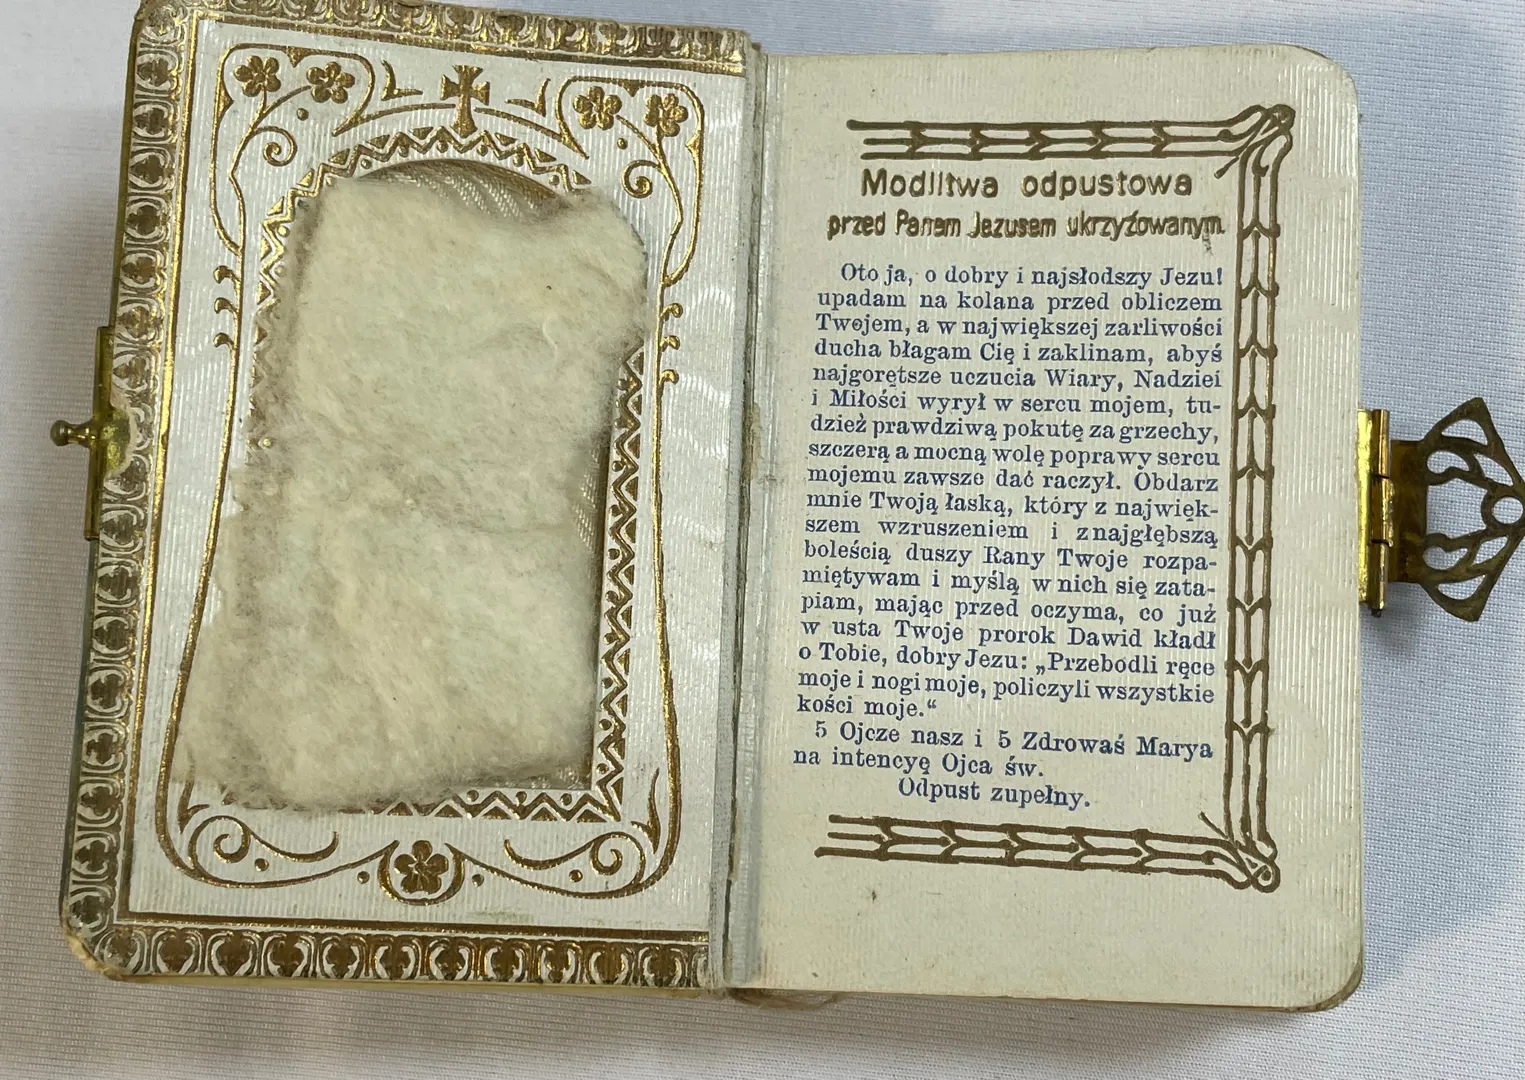 Modlitwa odpustowa
przed Panem Jezusem ukrzyżowanym.
Oto ja, o dobry i najsłodszy Jezu!
upadam na kolana przed obliczem
Twojem, a w największej zarliwości
ducha błagam Cię i zaklinam, abyś
najgorętsze uczucia Wiary, Nadziei
i Miłości wyrył w sercu mojem, tu-
dzież prawdziwą pokutę za grzechy,
szczerą a mocną wolę poprawy sercu
mojemu zawsze dać raczył. Obdarz
mnie Twoją łaską, który z najwięk-
szem wzruszeniem i z najgłębszą
boleścią duszy Rany Twoje rozpa-
miętywam i myślą w nich się zata-
piam, mając przed oczyma, co już
w usta Twoje prorok Dawid kładł
o Tobie, dobry Jezu: „Przebodli ręce
moje i nogi moje, policzyli wszystkie
kości moje.“
5 Ojcze nasz i 5 Zdrowaś Marya
na intencyę Ojca św.
Odpust zupełny.